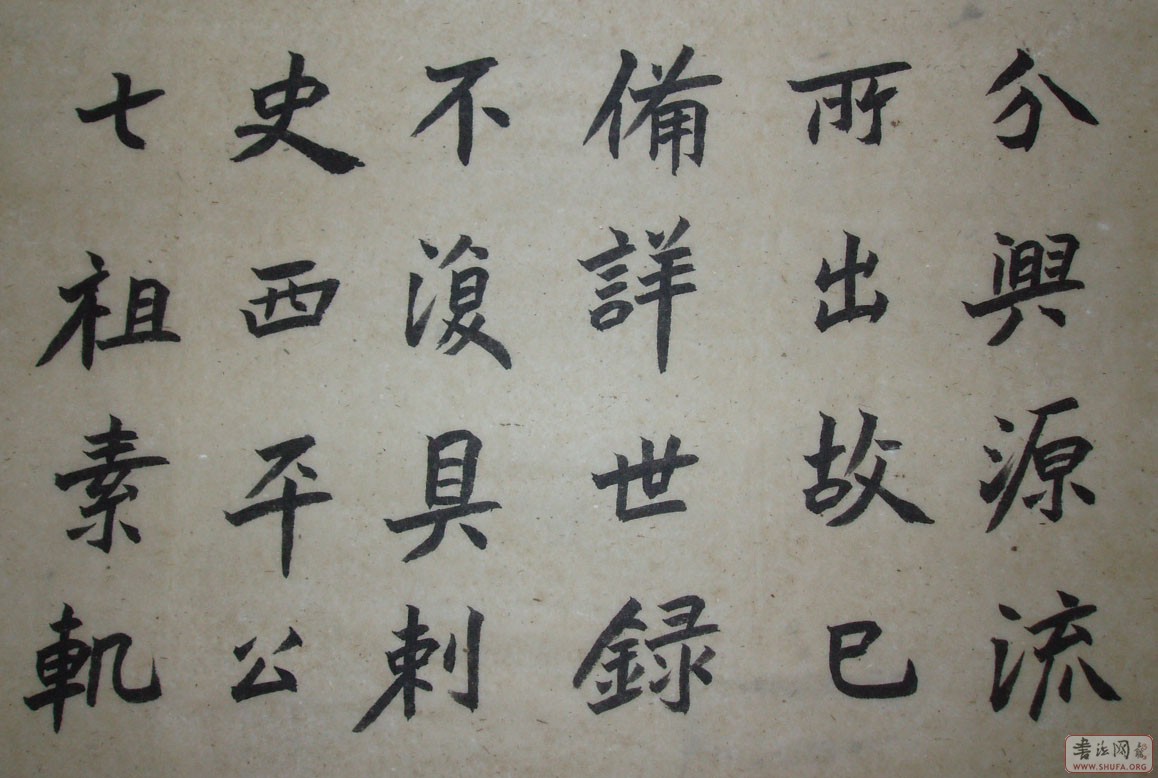 分興源流
所出故已
備詳世録
不復具刺
史西平公
七祖素軌
書法网报
WWW.SHUFA.ORG